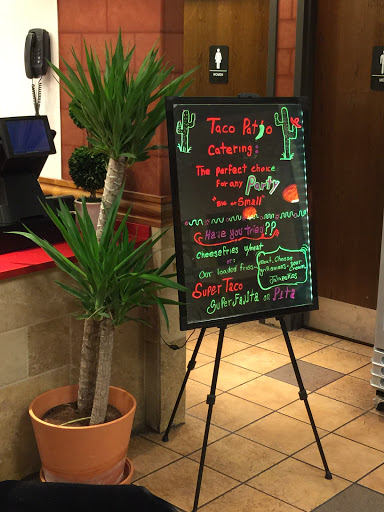 WOMEN
Taco Patio
Catering:
The perfect choice
For any Party
"BIG or Small"
Have you tried??
Cheesefries w/meat
or:
Our loaded fries-
Meat, Cheese
gr. onions - sour
cream,
Jalapeños
Super Taco
Super Fajita on Pita